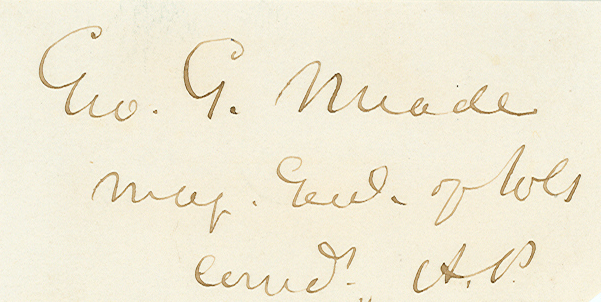 Geo. G. Meade
Maj. Genl. of Vols
Comd'. A.P.